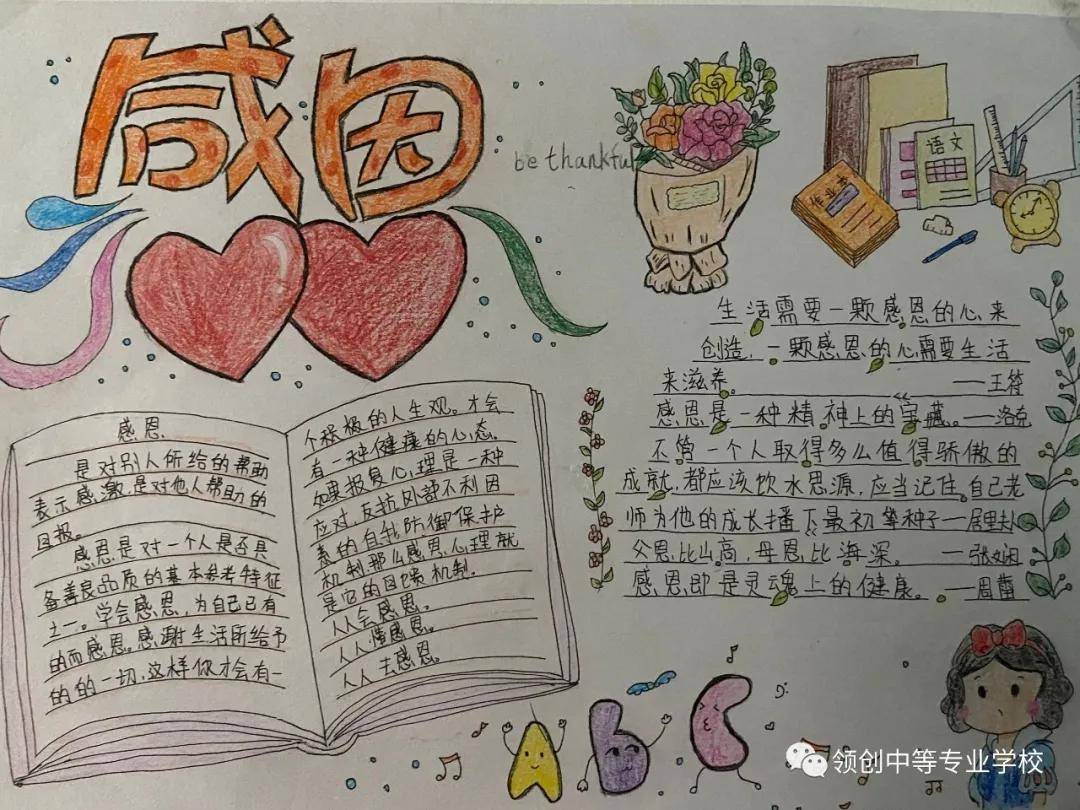 感因
be thankful
语文
作业本
感恩.
是对别人所给的帮助
表示感激,是对他人帮助的
回报。
感恩是对一个人是否具
备善良品质的基本参考特征
之一。学会感恩,为自己已有
的而感恩。感谢生活所给予
的的一切,这样你才会有一
个积极的人生观。才会
有一种健康的心态。
如果报复心理是一种
应对,反抗外部不利因
素的自我防御保护
机制那么感恩心理就
是它的回馈机制.
人人会感恩。
人人懂感恩。
人人去感恩。
生活需要一颗感恩的心来
创造,一颗感恩的心需要生活
来滋养。 —王符
感恩是一种精神上的宝藏。—洛克
不管一个人取得多么值得骄傲的
成就,都应该饮水思源,应当记住自己老
师为他的成长播下最初等种子—居里夫
父恩比山高,母恩比海深。 —张
感恩即是灵魂上的健康。—周
A b C
领创中等专业学校